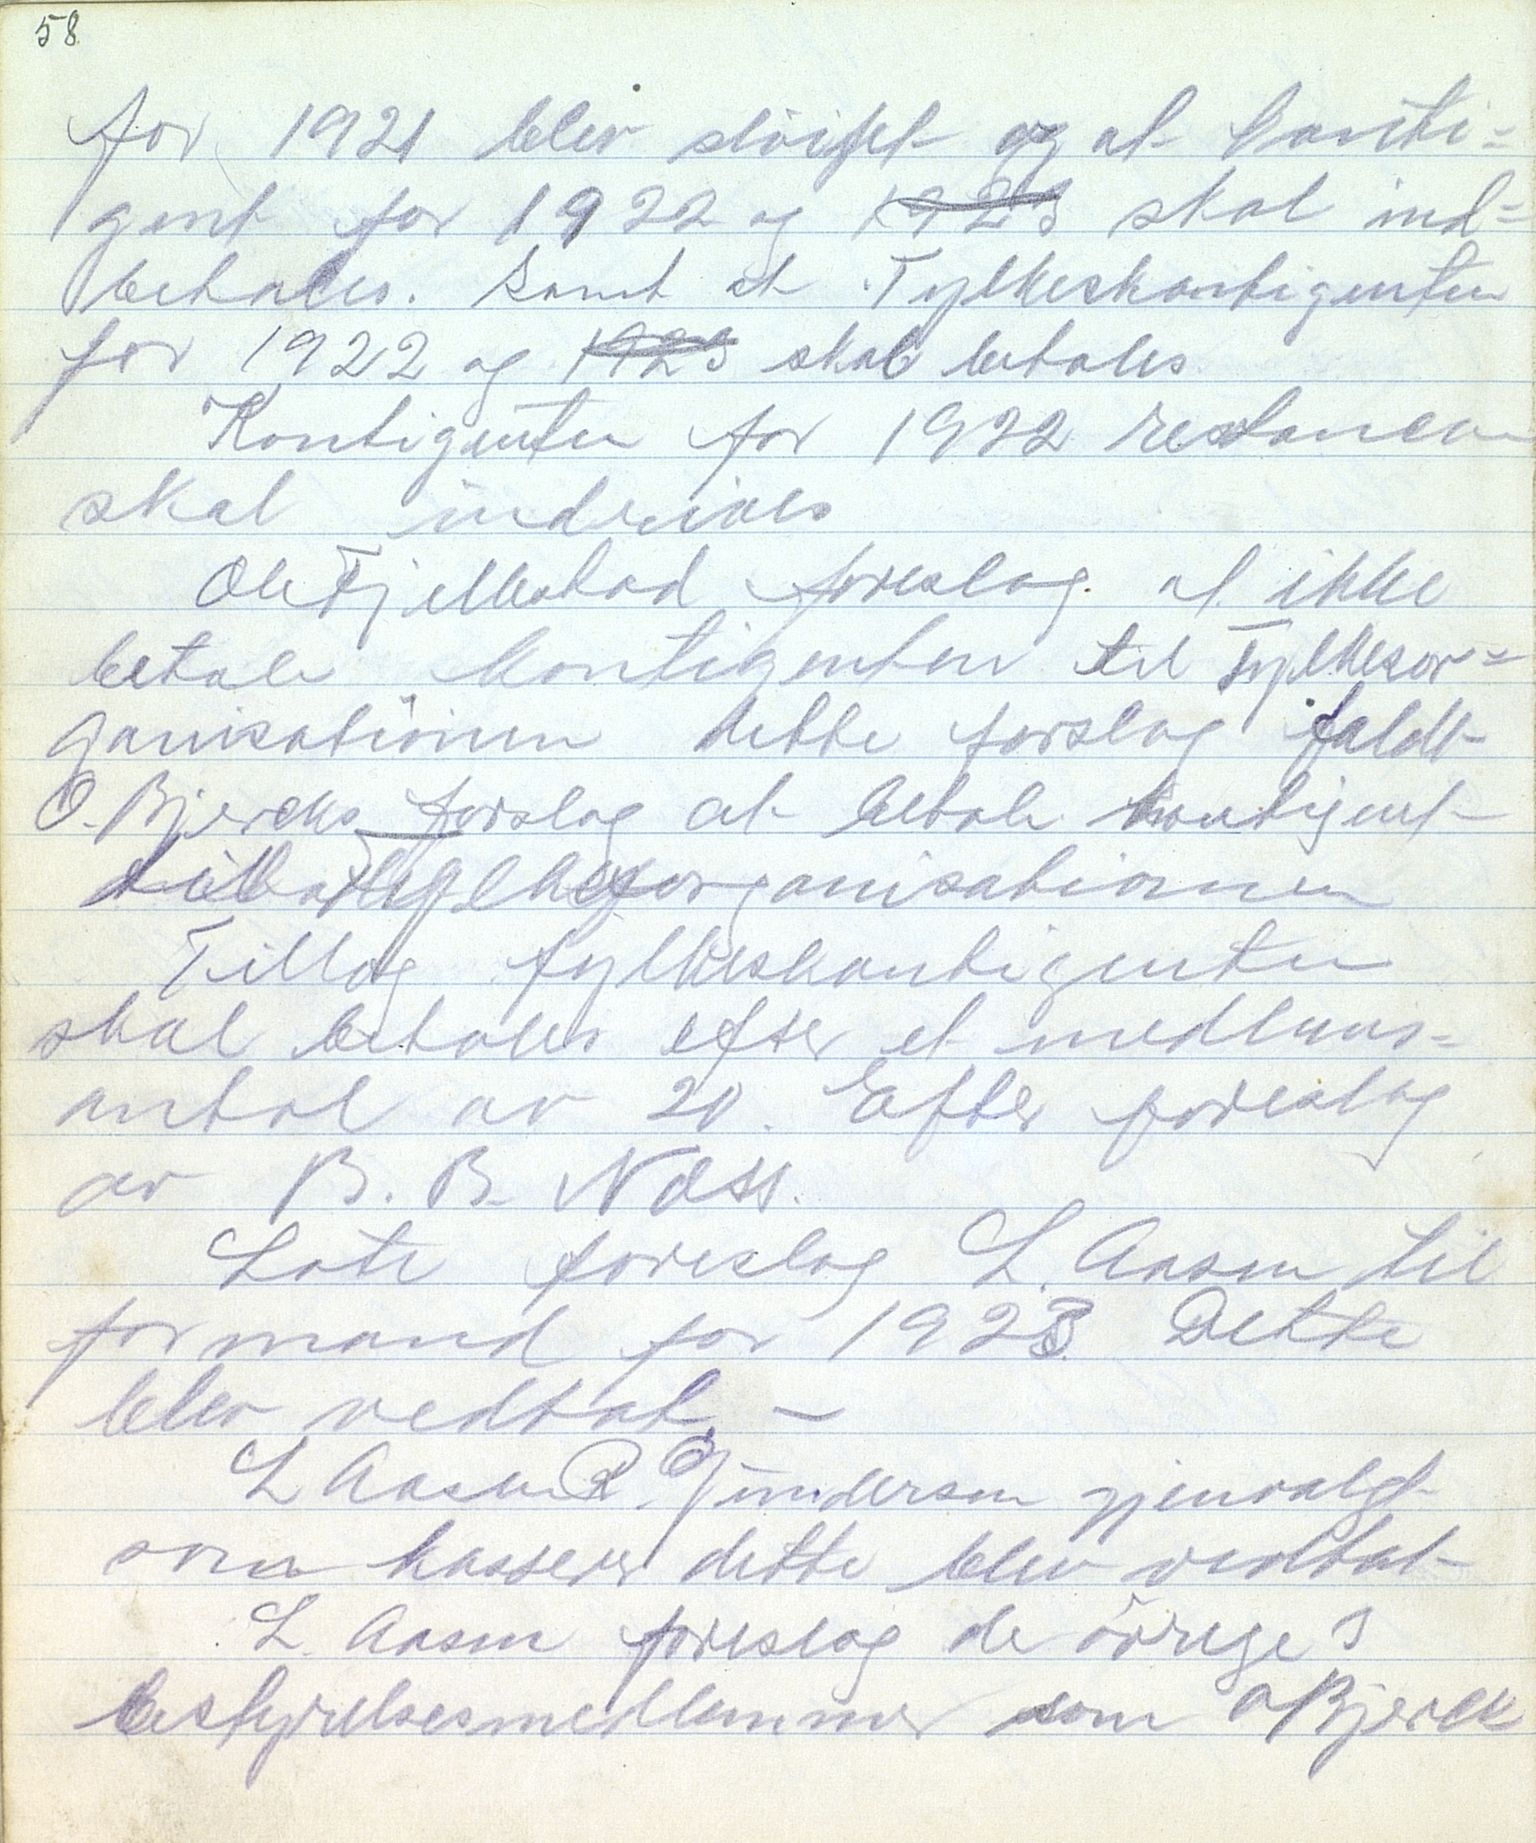 58
for 1921 blev sløifet og at konti=
gent for 1922 og 1923 skal ind=
betales. Samt at Fylkeskontigenten
for 1922 og 1923 skal betales
Kontigenten for 1922 restancen
skal indrives
Ole Fjellestad foreslog at ikke
betale kontigenten til Fylkesor=
ganisationen dette forslag faldt
O. Bjercks forslag at betale kontigent
til Fylkesorganisationen
Tillæg fylkeskontigenten
skal betales efter et medlems=
antal av 20. Efter foreslag
av B. B. Næss.
Lote foreslog L. Aasen til
formand for 1923. Dette
blev vedtat. –
L Aasen R. Gundersen gjenvalgt
som kasserer dette blev vedtat
L. Aasen foreslog de øvrige 3
bestyrelsesmedlemmer som O Bjerck